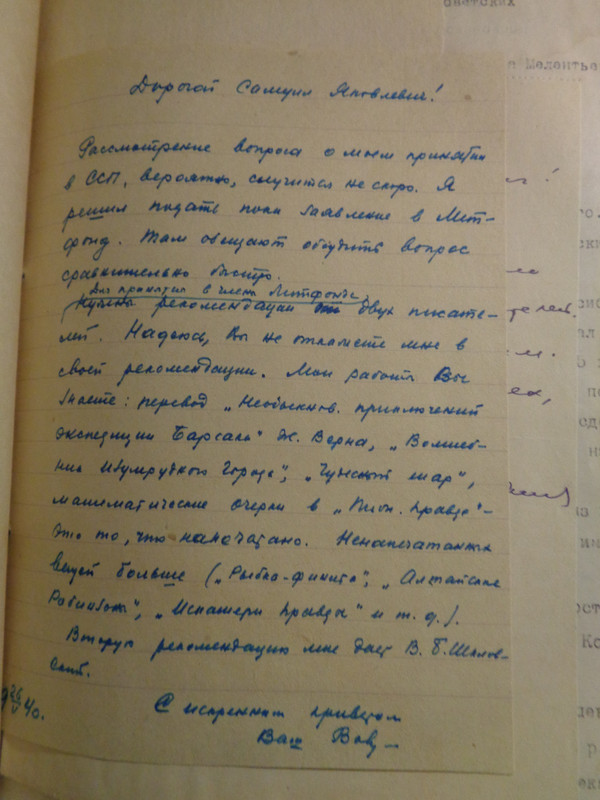 Дорогой Самуил Яковлевич!
Рассмотрение вопроса о моем принятии
в ССП, вероятно, случится не скоро. Я
решил подать пока заявление в Лит-
фонд. Там обещают обсудить вопрос
сравнительно быстро.
Для принятия в члены Литфонда
нужны рекомендации двух писате-
лей. Надеюсь, Вы не откажете мне в
своей рекомендации. Мои работы Вы
знаете: перевод „Необыкнов. приключений
экспедиции Барсака" Ж. Верна, „Волшеб-
ник Изумрудного Города", „Чудесный шар",
математические очерки в „Пион. правде"–
это то, что напечатано. Ненапечатанных
вещей больше („Рыбка-финита", „Алтайские
Робинзоны", „Искатели правды" и т. д.).
Вторую рекомендацию мне дает В. Б. Шклов-
ский.
26/V 40.
С искренним приветом
Ваш
оветских
Мелентье